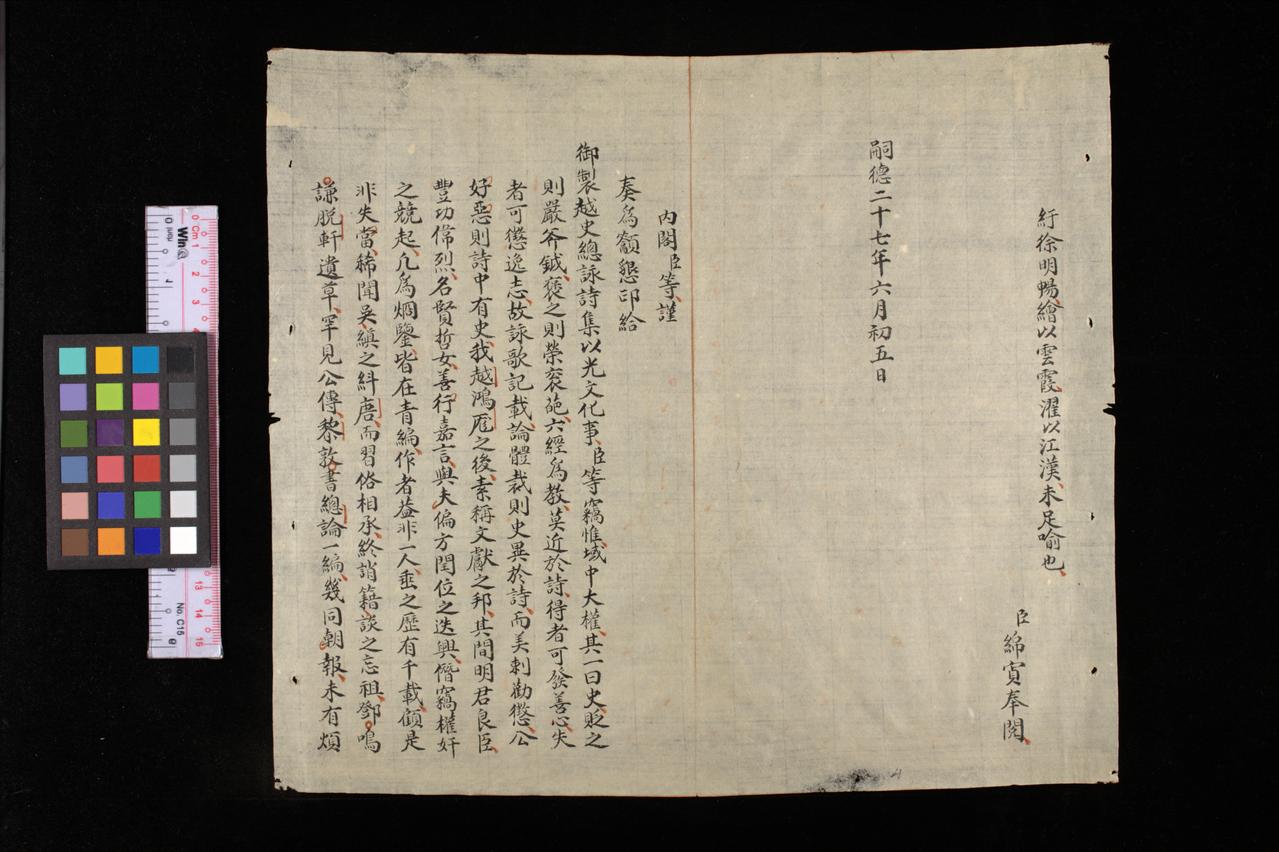 紆徐明暢繪以雲霞濯以江漢未足喻也
臣綿寊奉閱
嗣德二十七年六月初五日
內閣臣等謹
奏爲籲懇印給
御製越史總詠詩集以光文化事臣等竊惟域中大權其一曰史貶之
則嚴斧鉞褒之則榮袞葩六經爲教莫近於詩得者可發善心失
者可懲逸志故詠歌記載論體裁則史異於詩而美刺勸懲公
好惡則詩中有史我越鴻厖之後素稱文獻之邦其間明君良臣
豐功偉烈名賢哲女善行嘉言與夫偏方閏位之迭興僭竊權奸
之競起凡爲炯鑒皆在青編作者益非一人垂之歷有千載顧是
非失當稀聞吳縝之糾唐而習俗相承終誚籍談之忘祖鄧鳴
謙脫軒遺草罕見公傳黎敦書總論一編幾同朝報未有煩
0 Cm 1 2 3 13 14 15
Win
No. C15